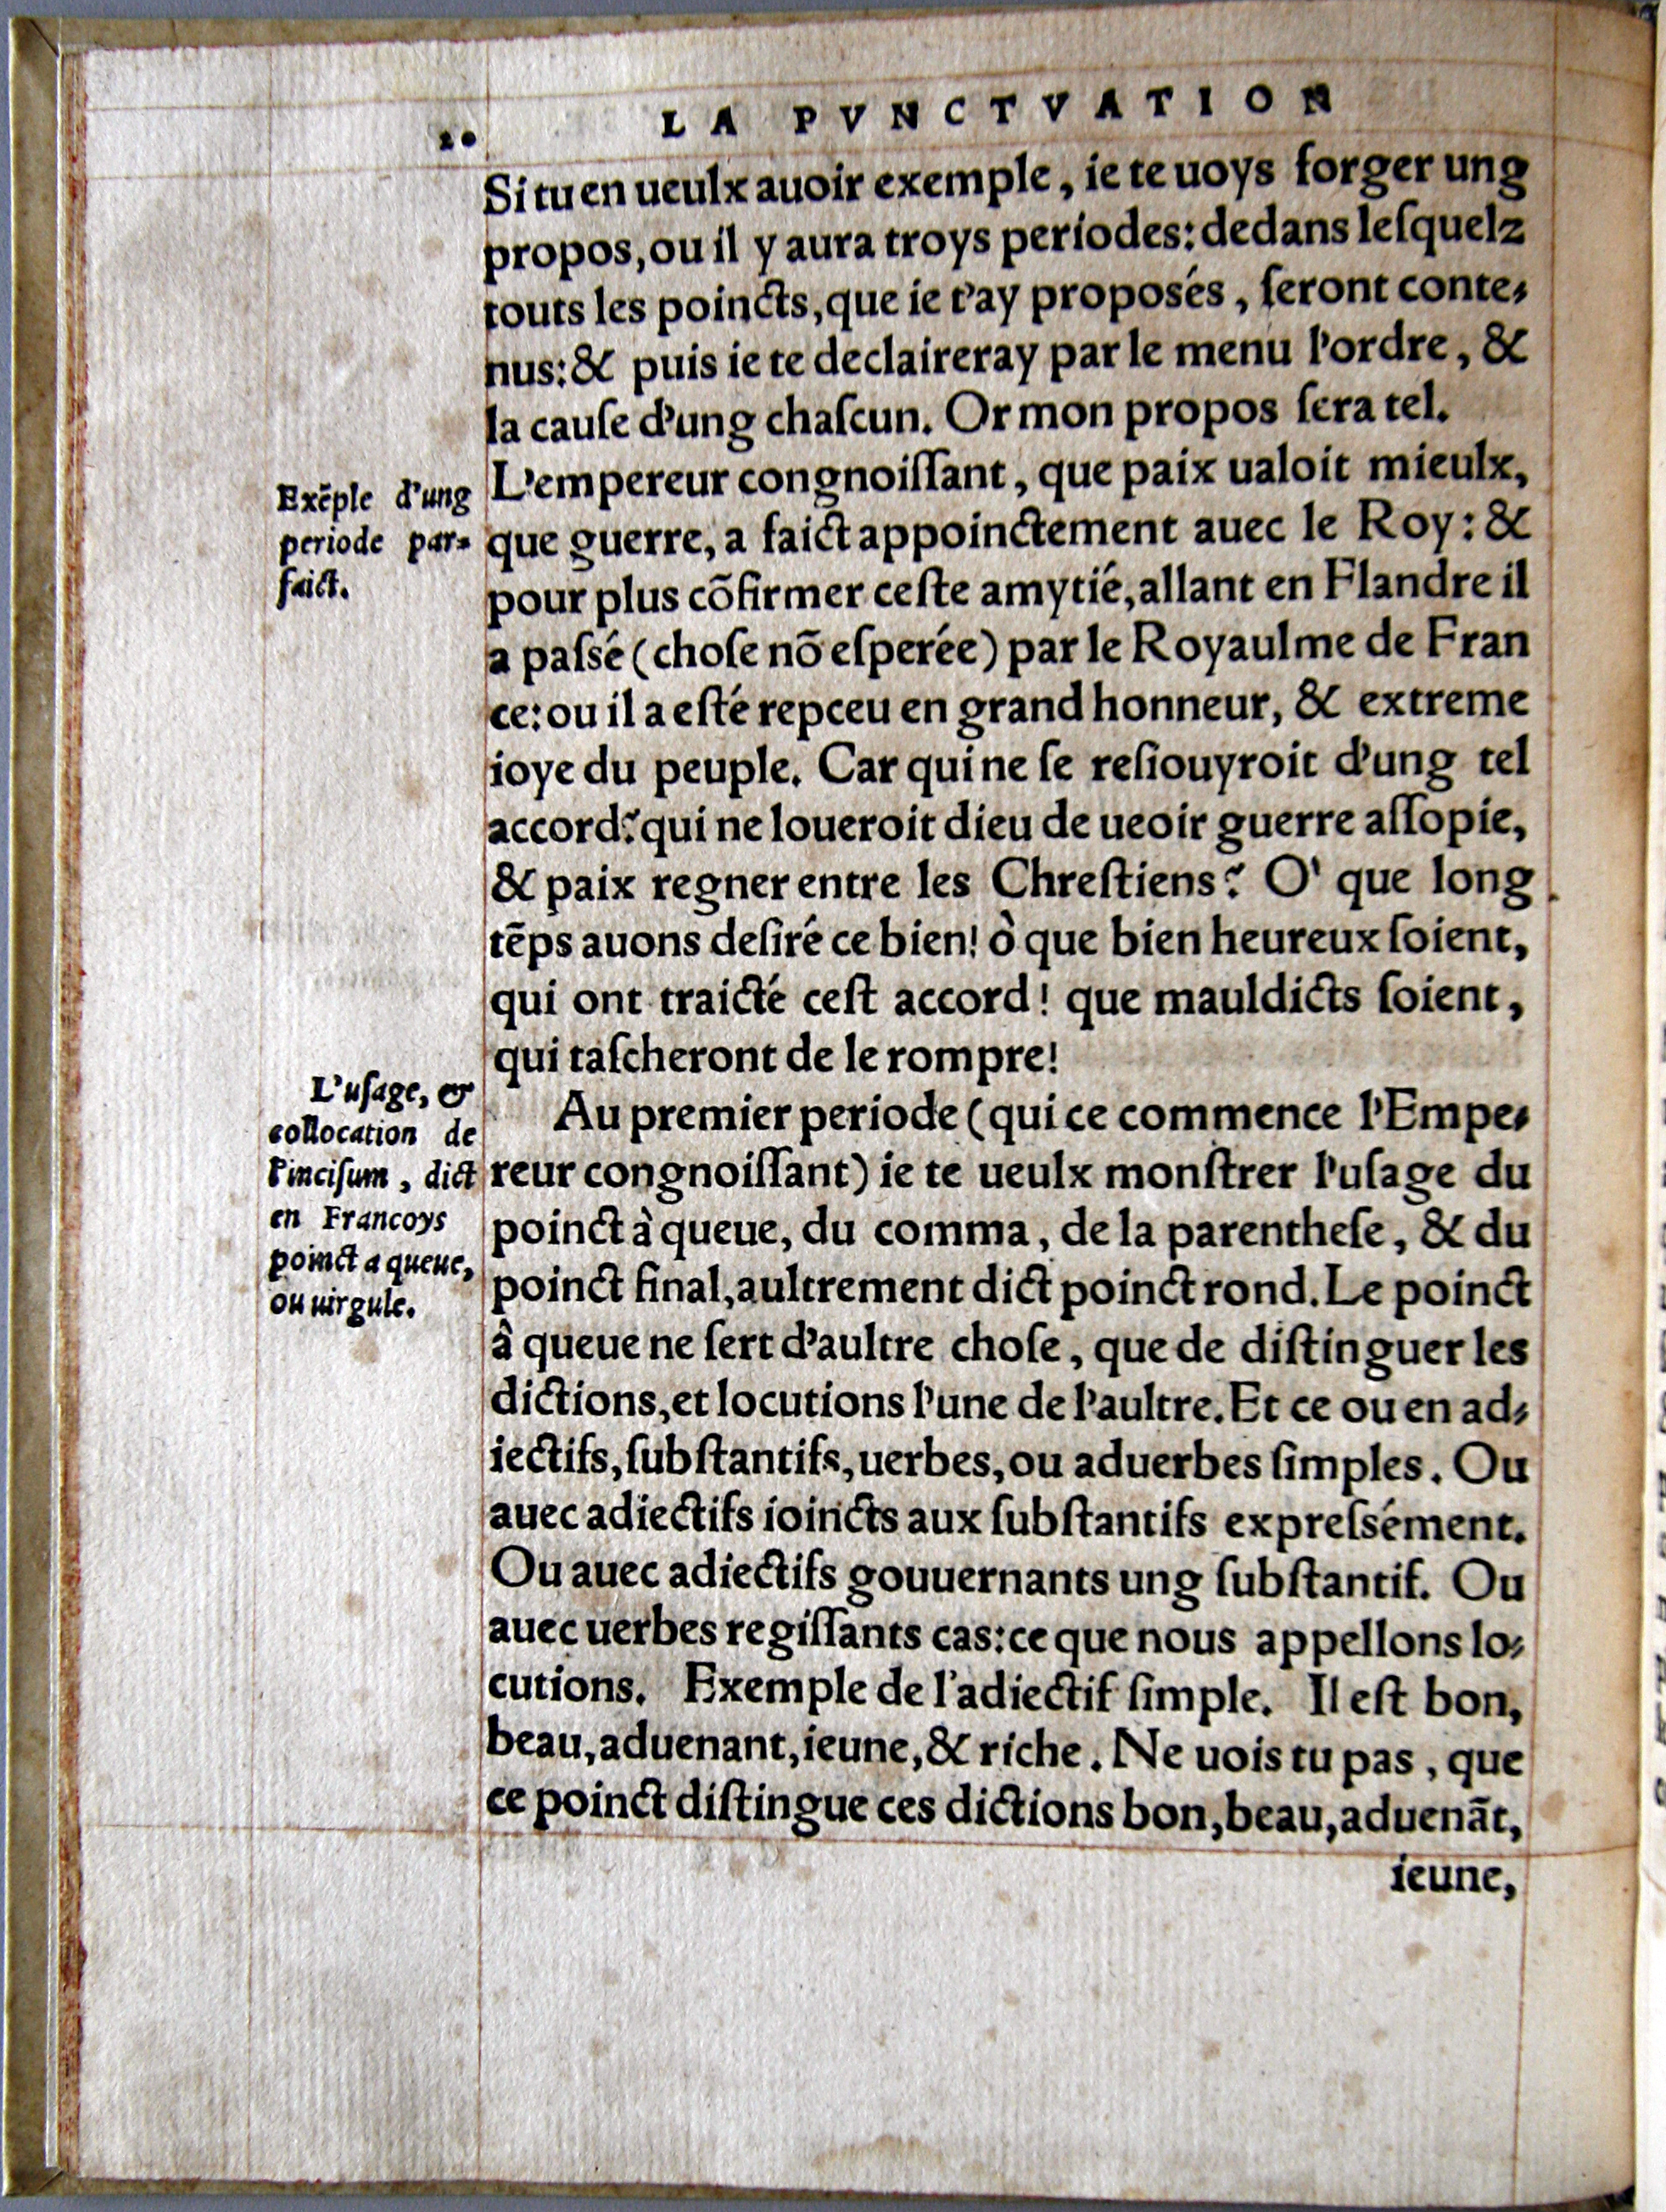 20
LA PVNCTVATION
Si tu en ueulx auoir exemple, ie te uoys forger ung
propos, ou il y aura troys periodes: dedans leſquelz
touts les poincts, que ie t'ay proposés, ſeront conte-
nus: & puis ie te declaireray par le menu l'ordre, &
la cauſe d'ung chaſcun. Or mon propos ſera tel.
L'empereur congnoiſſant, que paix ualoit mieulx,
que guerre, a faict appoinctement auec le Roy: &
pour plus cõfirmer ceſte amytié, allant en Flandre il
a paſsé (choſe nõ eſperée) par le Royaulme de Fran
ce: ou il a eſté repceu en grand honneur, & extreme
ioye du peuple. Car qui ne ſe reſiouyroit d'ung tel
accord? qui ne loueroit dieu de ueoir guerre aſſopie,
& paix regner entre les Chreſtiens? O' que long
tẽps auons deſiré ce bien! ò que bien heureux ſoient,
qui ont traicté ceſt accord! que mauldicts ſoient,
qui taſcheront de le rompre!
Au premier periode (qui ce commence l'Empe-
reur congnoiſſant) ie te ueulx monſtrer l'uſage du
poinct à queue, du comma, de la parentheſe, & du
poinct final, aultrement dict poinct rond. Le poinct
â queue ne ſert d'aultre choſe, que de diſtinguer les
dictions, et locutions l'une de l'aultre. Et ce ou en ad-
iectifs, ſubſtantifs, uerbes, ou aduerbes ſimples. Ou
auec adiectifs ioincts aux ſubſtantifs expreſsément.
Ou auec adiectifs gouuernants ung ſubſtantif. Ou
auec uerbes regiſſants cas: ce que nous appellons lo-
cutions. Exemple de l'adiectif ſimple. Il eſt bon,
beau, aduenant, ieune, & riche. Ne uois tu pas, que
ce poinct diſtingue ces dictions bon, beau, aduenãt,
ieune,
Exẽple d'ung
periode par-
faict.
L'uſage, &
collocation de
l'inciſum, dict
en Francoys
poinct a queue,
ou uirgule.